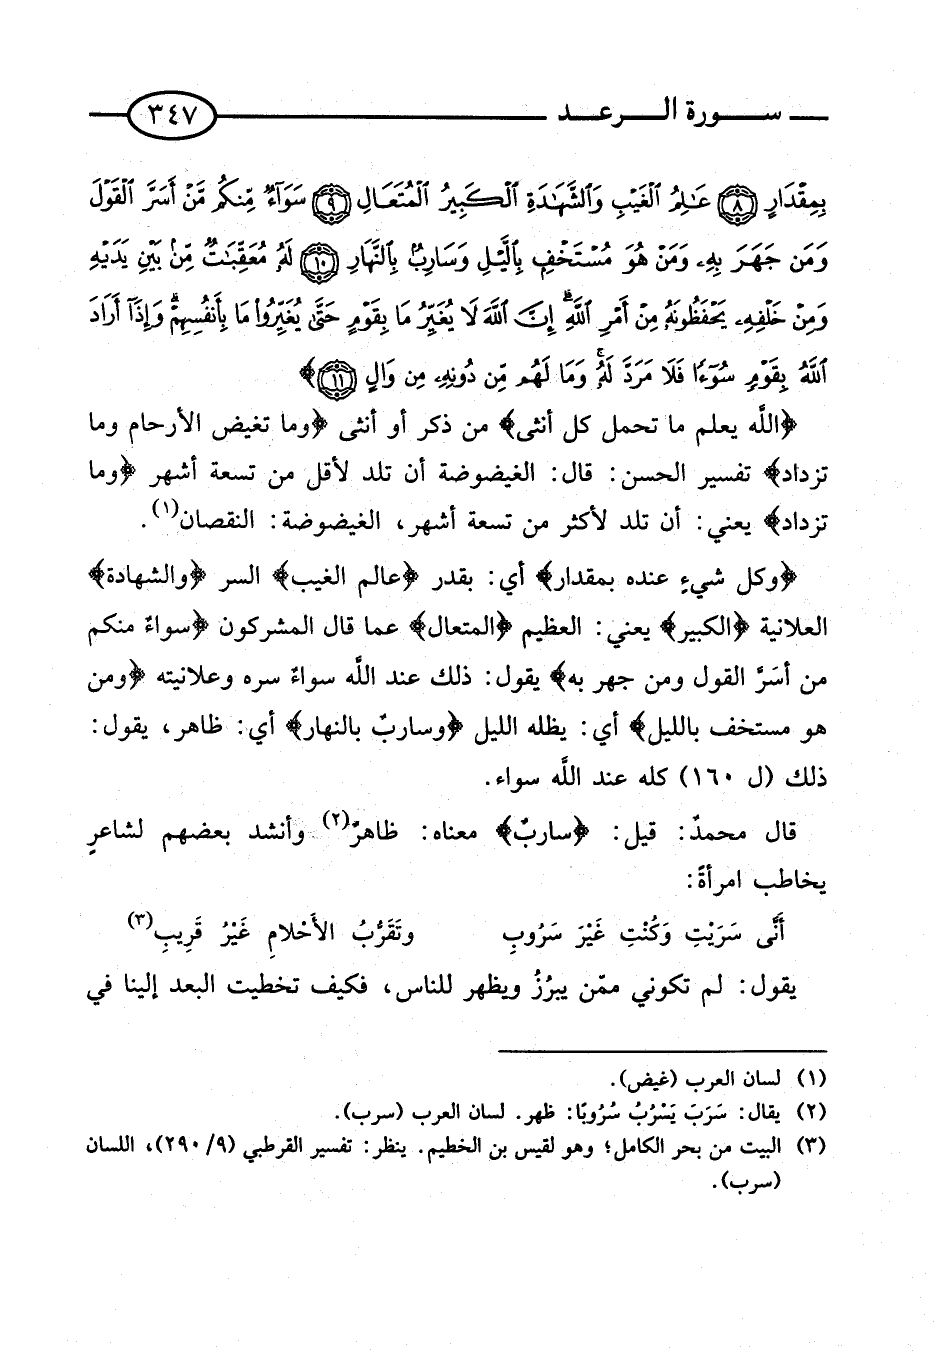 سورة الرعد ٣٤٧
بِمِقْدَارٍ ﴿٨﴾ عَالِمُ الْغَيْبِ وَالشَّهَادَةِ الْكَبِيرُ الْمُتَعَالِ ﴿٩﴾ سَوَاءٌ مِنكُم مَّنْ أَسَرَّ الْقَوْلَ
وَمَن جَهَرَ بِهِ وَمَنْ هُوَ مُسْتَخْفٍ بِاللَّيْلِ وَسَارِبٌ بِالنَّهَارِ ﴿١٠﴾ لَهُ مُعَقِّبَاتٌ مِنْ بَيْنِ يَدَيْهِ
وَمِنْ خَلْفِهِ يَحْفَظُونَهُ مِنْ أَمْرِ اللَّهِ إِنَّ اللَّهَ لَا يُغَيِّرُ مَا بِقَوْمٍ حَتَّى يُغَيِّرُوا مَا بِأَنفُسِهِمْ وَإِذَا أَرَادَ
اللَّهُ بِقَوْمٍ سُوءًا فَلَا مَرَدَّ لَهُ وَمَا لَهُم مِّن دُونِهِ مِن وَالٍ ﴿١١﴾﴾
﴿اللَّه يعلم ما تحمل كل أنثى﴾ من ذكر أو أنثى ﴿وما تغيض الأرحام وما
تزداد﴾ تفسير الحسن: قال: الغيضوضة أن تلد لأقل من تسعة أشهر ﴿وما
تزداد﴾ يعني: أن تلد لأكثر من تسعة أشهر، الغيضوضة: النقصان(١).
﴿وكل شيءٍ عنده بمقدار﴾ أي: بقدر ﴿عالم الغيب﴾ السر ﴿والشهادة﴾
العلانية ﴿الكبير﴾ يعني: العظيم ﴿المتعال﴾ عما قال المشركون ﴿سواءٌ منكم
من أسَرَّ القول ومن جهر به﴾ يقول: ذلك عند اللَّه سواءٌ سره وعلانيته ﴿ومن
هو مستخف بالليل﴾ أي: يظله الليل ﴿وساربٌ بالنهار﴾ أي: ظاهر، يقول:
ذلك (ل ١٦٠) كله عند اللَّه سواء.
قال محمدٌ: قيل: ﴿ساربٌ﴾ معناه: ظاهرٌ(٢) وأنشد بعضهم لشاعرٍ
يخاطب امرأةً:
أَنَّى سَرَيْتِ وَكُنْتِ غَيْرَ سَرُوبِ وتَقَرُّبُ الأَحْلامِ غَيْرُ قَرِيبِ(٣)
يقول: لم تكوني ممّن يبرُزُ ويظهر للناس، فكيف تخطيت البعد إلينا في
(١) لسان العرب (غيض).
(٢) يقال: سَرَبَ يَسْرُبُ سُرُوبًا: ظهر. لسان العرب (سرب).
(٣) البيت من بحر الكامل؛ وهو لقيس بن الخطيم. ينظر: تفسير القرطبي (٩/٢٩٠)، اللسان
(سرب).